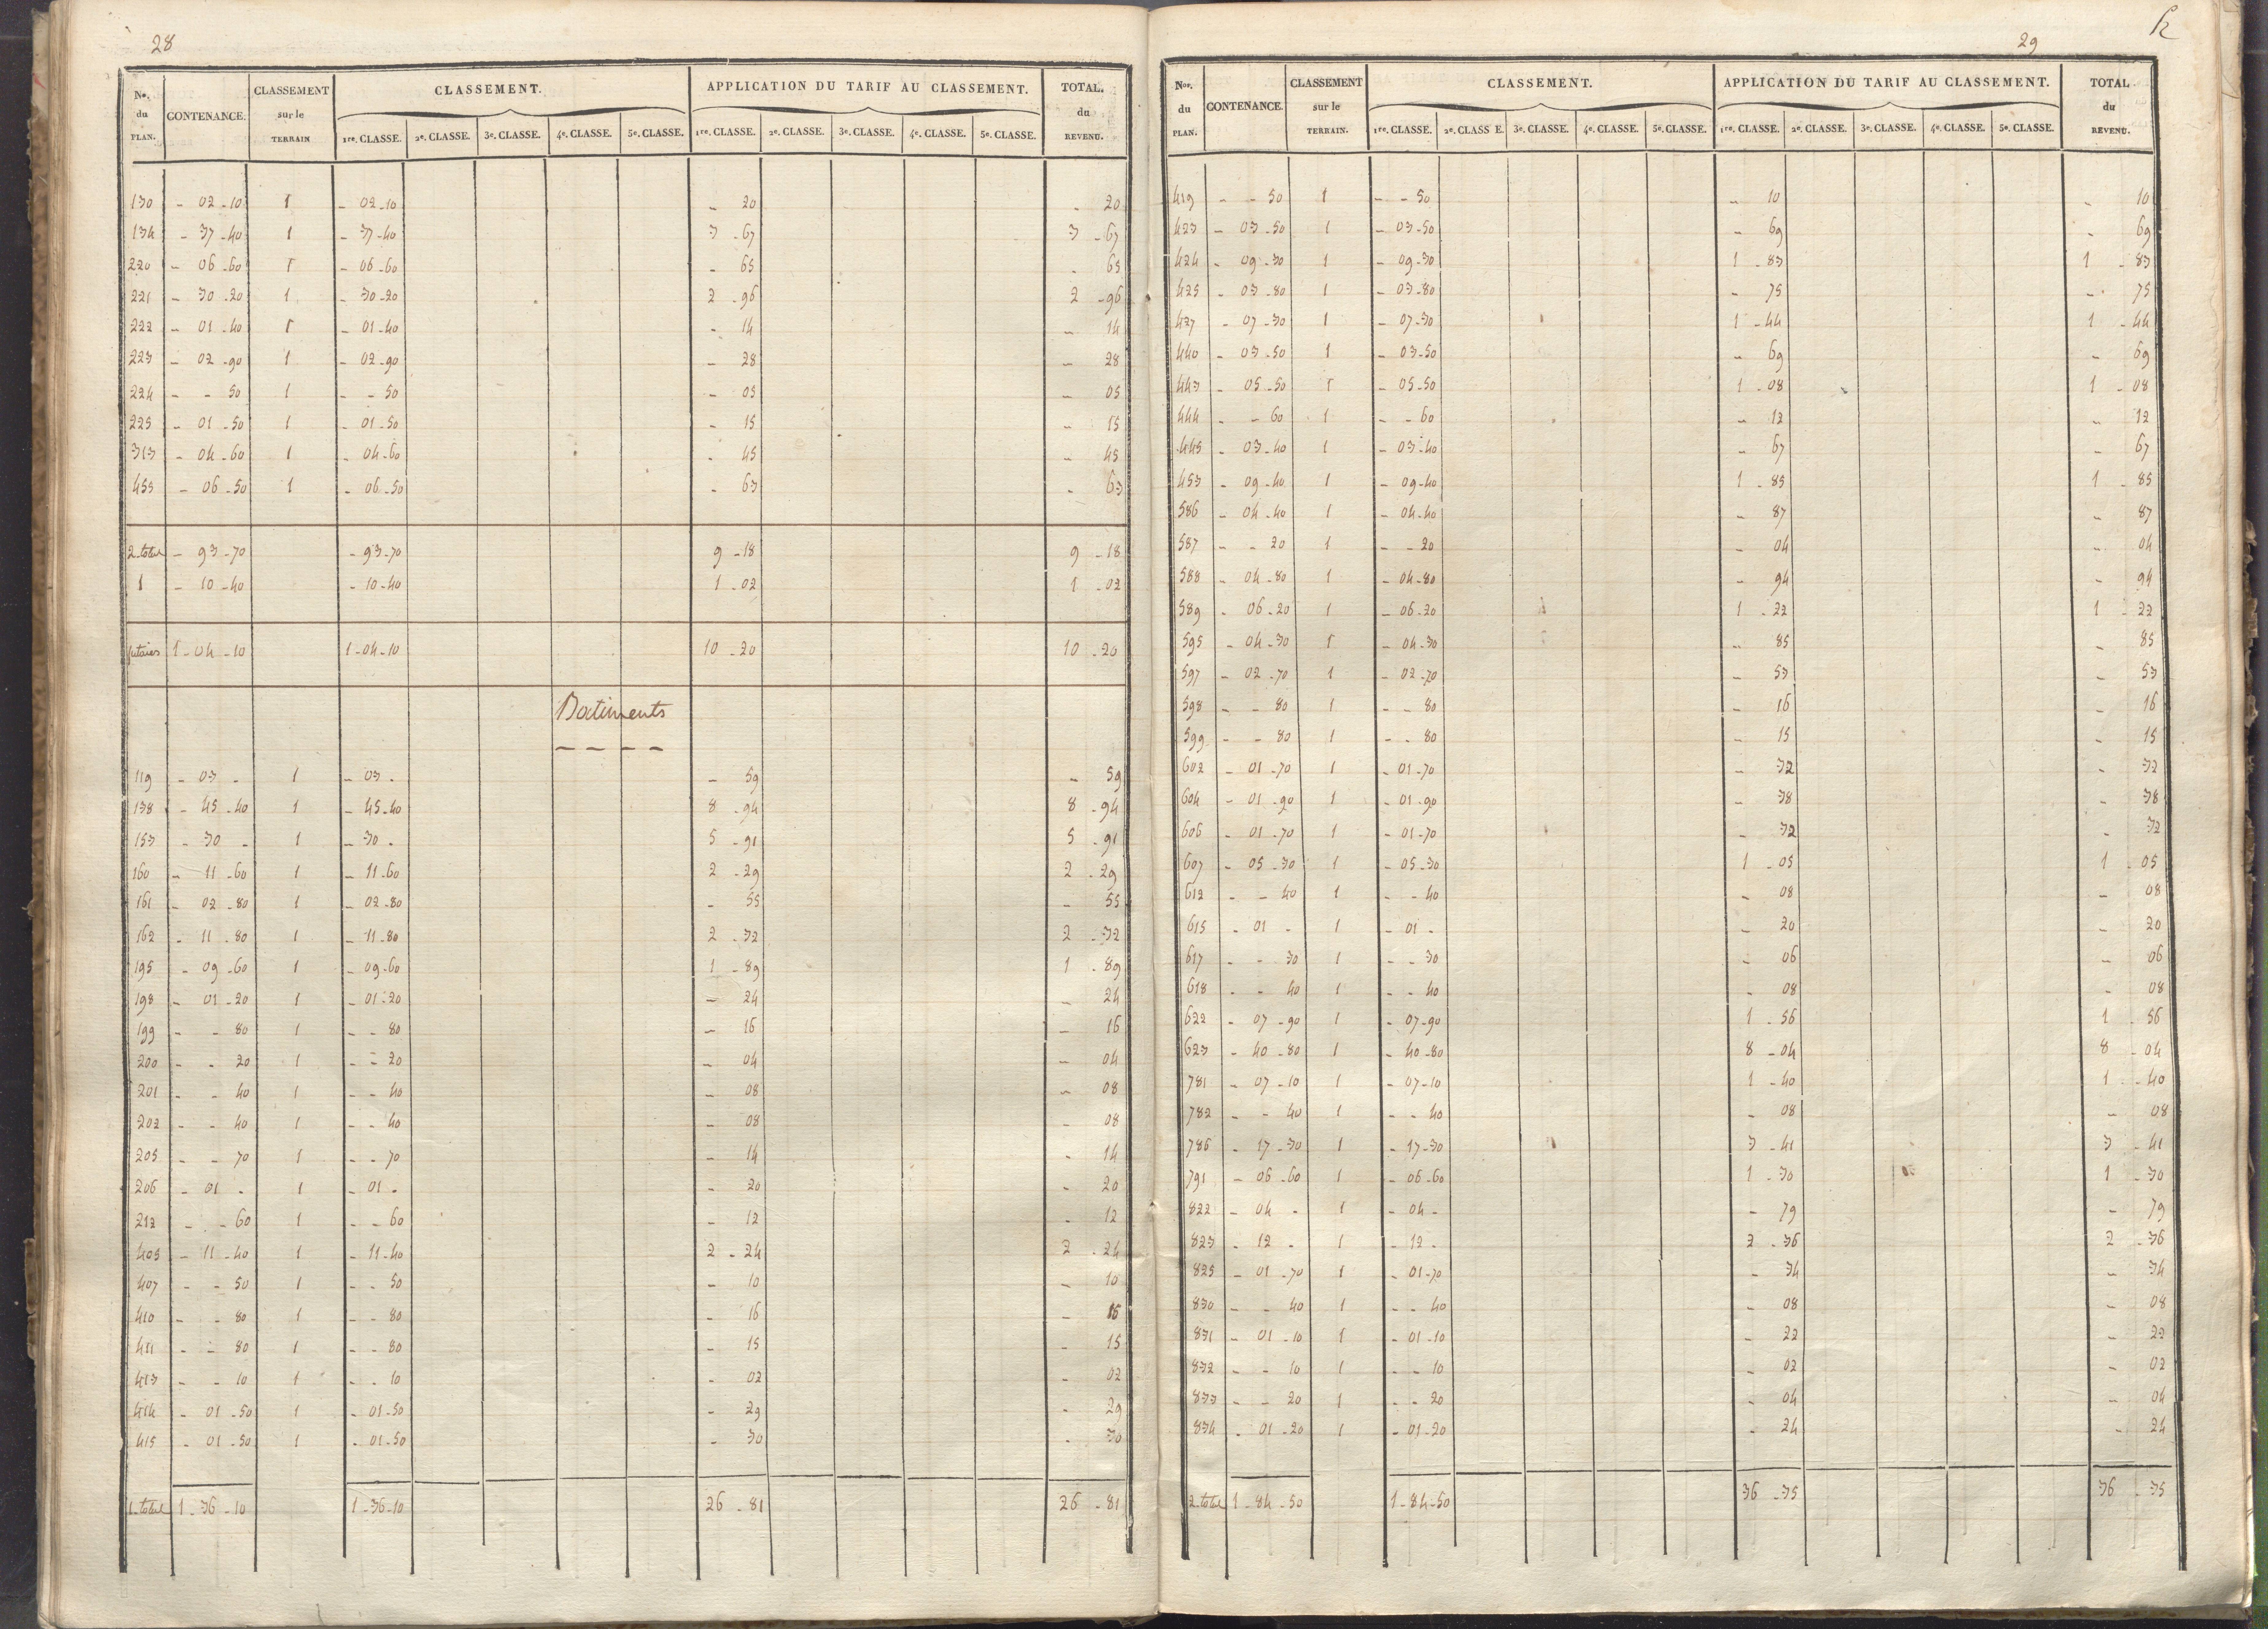 28
Nos. du PLAN. CONTENANCE. CLASSEMENT sur le TERRAIN CLASSEMENT. APPLICATION DU TARIF AU CLASSEMENT. TOTAL. du REVENU.
1re. CLASSE. 2e. CLASSE. 3e. CLASSE. 4e. CLASSE. 5e. CLASSE. 1re. CLASSE. 2e. CLASSE. 3e. CLASSE. 4e. CLASSE. 5e. CLASSE.
130 - 02 - 10 1 - 02 - 10 - 20 - 20
134 - 37 - 40 1 - 37 - 40 3 - 67 3 - 67
220 - 06 - 60 1 - 06 - 60 - 65 - 65
221 - 30 - 20 1 - 30 - 20 2 - 96 2 - 96
222 - 01 - 40 1 - 01 - 40 - 14 - 14
223 - 02 - 90 1 - 02 - 90 - 28 - 28
224 - - 50 1 - - 50 - 05 - 05
225 - 01 - 50 1 - 01 - 50 - 15 - 15
313 - 04 - 60 1 - 04 - 60 - 45 - 45
455 - 06 - 50 1 - 06 - 50 - 63 - 63
2. total - 93 - 70 - 93 - 70 9 - 18 9 - 18
1 - 10 - 40 - 10 - 40 1 - 02 1 - 02
futaies 1 - 04 - 10 1 - 04 - 10 10 - 20 10 - 20
Batiments
119 - 03 - 1 - 03 - - 59 - 59
138 - 45 - 40 1 - 45 - 40 8 - 94 8 - 94
153 - 30 - 1 - 30 - 5 - 91 5 - 91
160 - 11 - 60 1 - 11 - 60 2 - 29 2 - 29
161 - 02 - 80 1 - 02 - 80 - 55 - 55
162 - 11 - 80 1 - 11 - 80 2 - 32 2 - 32
195 - 09 - 60 1 - 09 - 60 1 - 89 1 - 89
198 - 01 - 20 1 - 01 - 20 - 24 - 24
199 - - 80 1 - - 80 - 16 - 16
200 - - 20 1 - - 20 - 04 - 04
201 - - 40 1 - - 40 - 08 - 08
202 - - 40 1 - - 40 - 08 - 08
205 - - 70 1 - - 70 - 14 - 14
206 - 01 - 1 - 01 - - 20 - 20
212 - - 60 1 - - 60 - 12 - 12
405 - 11 - 40 1 - 11 - 40 2 - 24 2 - 24
407 - - 50 1 - - 50 - 10 - 10
410 - - 80 1 - - 80 - 16 - 16
411 - - 80 1 - - 80 - 15 - 15
413 - - 10 1 - - 10 - 02 - 02
414 - 01 - 50 1 - 01 - 50 - 29 - 29
415 - 01 - 50 1 - 01 - 50 - 30 - 30
1. total 1 - 36 - 10 1 - 36 - 10 26 - 81 26 - 81
29
Nos. du PLAN. CONTENANCE. CLASSEMENT sur le TERRAIN. CLASSEMENT. APPLICATION DU TARIF AU CLASSEMENT. TOTAL du REVENU.
1re. CLASSE. 2e. CLASSE. 3e. CLASSE. 4e. CLASSE. 5e. CLASSE. 1re. CLASSE. 2e. CLASSE. 3e. CLASSE. 4e. CLASSE. 5e. CLASSE.
419 - - 50 1 - - 50 - 10 - 10
423 - 03 - 50 1 - 03 - 50 - 69 - 69
424 - 09 - 30 1 - 09 - 30 1 - 83 1 - 83
425 - 03 - 80 1 - 03 - 80 - 75 - 75
427 - 07 - 30 1 - 07 - 30 1 - 44 1 - 44
440 - 03 - 50 1 - 03 - 50 - 69 - 69
443 - 05 - 50 1 - 05 - 50 1 - 08 1 - 08
444 - - 60 1 - - 60 - 12 - 12
445 - 03 - 40 1 - 03 - 40 - 67 - 67
453 - 09 - 40 1 - 09 - 40 1 - 85 1 - 85
586 - 04 - 40 1 - 04 - 40 - 87 - 87
587 - - 20 1 - - 20 - 04 - 04
588 - 04 - 80 1 - 04 - 80 - 94 - 94
589 - 06 - 20 1 - 06 - 20 1 - 22 1 - 22
595 - 04 - 30 1 - 04 - 30 - 85 - 85
597 - 02 - 70 1 - 02 - 70 - 53 - 53
598 - - 80 1 - - 80 - 16 - 16
599 - - 80 1 - - 80 - 15 - 15
602 - 01 - 70 1 - 01 - 70 - 32 - 32
604 - 01 - 90 1 - 01 - 90 - 38 - 38
606 - 01 - 70 1 - 01 - 70 - 32 - 32
607 - 05 - 30 1 - 05 - 30 1 - 05 1 - 05
612 - - 40 1 - - 40 - 08 - 08
615 - 01 - 1 - 01 - - 20 - 20
617 - - 30 1 - - 30 - 06 - 06
618 - - 40 1 - - 40 - 08 - 08
622 - 07 - 90 1 - 07 - 90 1 - 56 1 - 56
623 - 40 - 80 1 - 40 - 80 8 - 04 8 - 04
781 - 07 - 10 1 - 07 - 10 1 - 40 1 - 40
782 - - 40 1 - - 40 - 08 - 08
786 - 17 - 30 1 - 17 - 30 3 - 41 3 - 41
791 - 06 - 60 1 - 06 - 60 1 - 30 1 - 30
822 - 04 - 1 - 04 - - 79 - 79
823 - 12 - 1 - 12 - 2 - 36 2 - 36
825 - 01 - 70 1 - 01 - 70 - 34 - 34
830 - - 40 1 - - 40 - 08 - 08
831 - 01 - 10 1 - 01 - 10 - 22 - 22
832 - - 10 1 - - 10 - 02 - 02
833 - - 20 1 - - 20 - 04 - 04
834 - 01 - 20 1 - 01 - 20 - 24 - 24
2. total 1 - 84 - 50 1 - 84 - 50 36 - 35 36 - 35